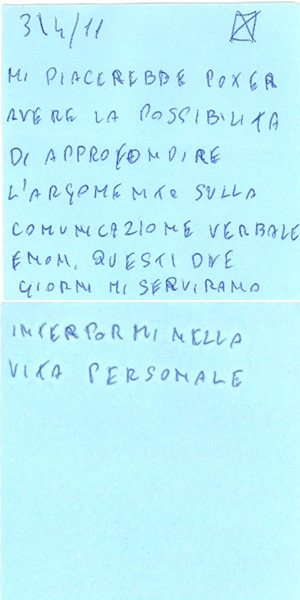 3/4/11
MI PIACEREBBE POTER
AVERE LA POSSIBILITA
DI APPROFONDIRE
L'ARGOMENTO SULLA
COMUNICAZIONE VERBALE
E NON. QUESTI DUE
GIORNI MI SERVIRANO
INTERPORMI NELLA
VITA PERSONALE